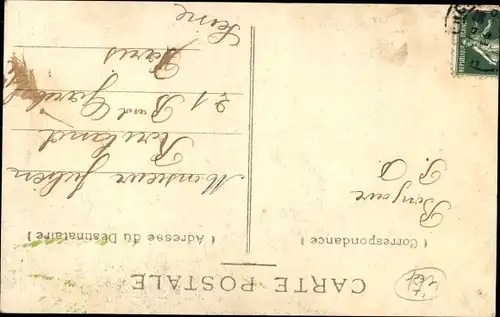 CARTE POSTALE
( Correspondance )
Bonjour
P. D.
( Adresse du Destinataire )
Monsieur Julien
21 Bard
Paris
Seine